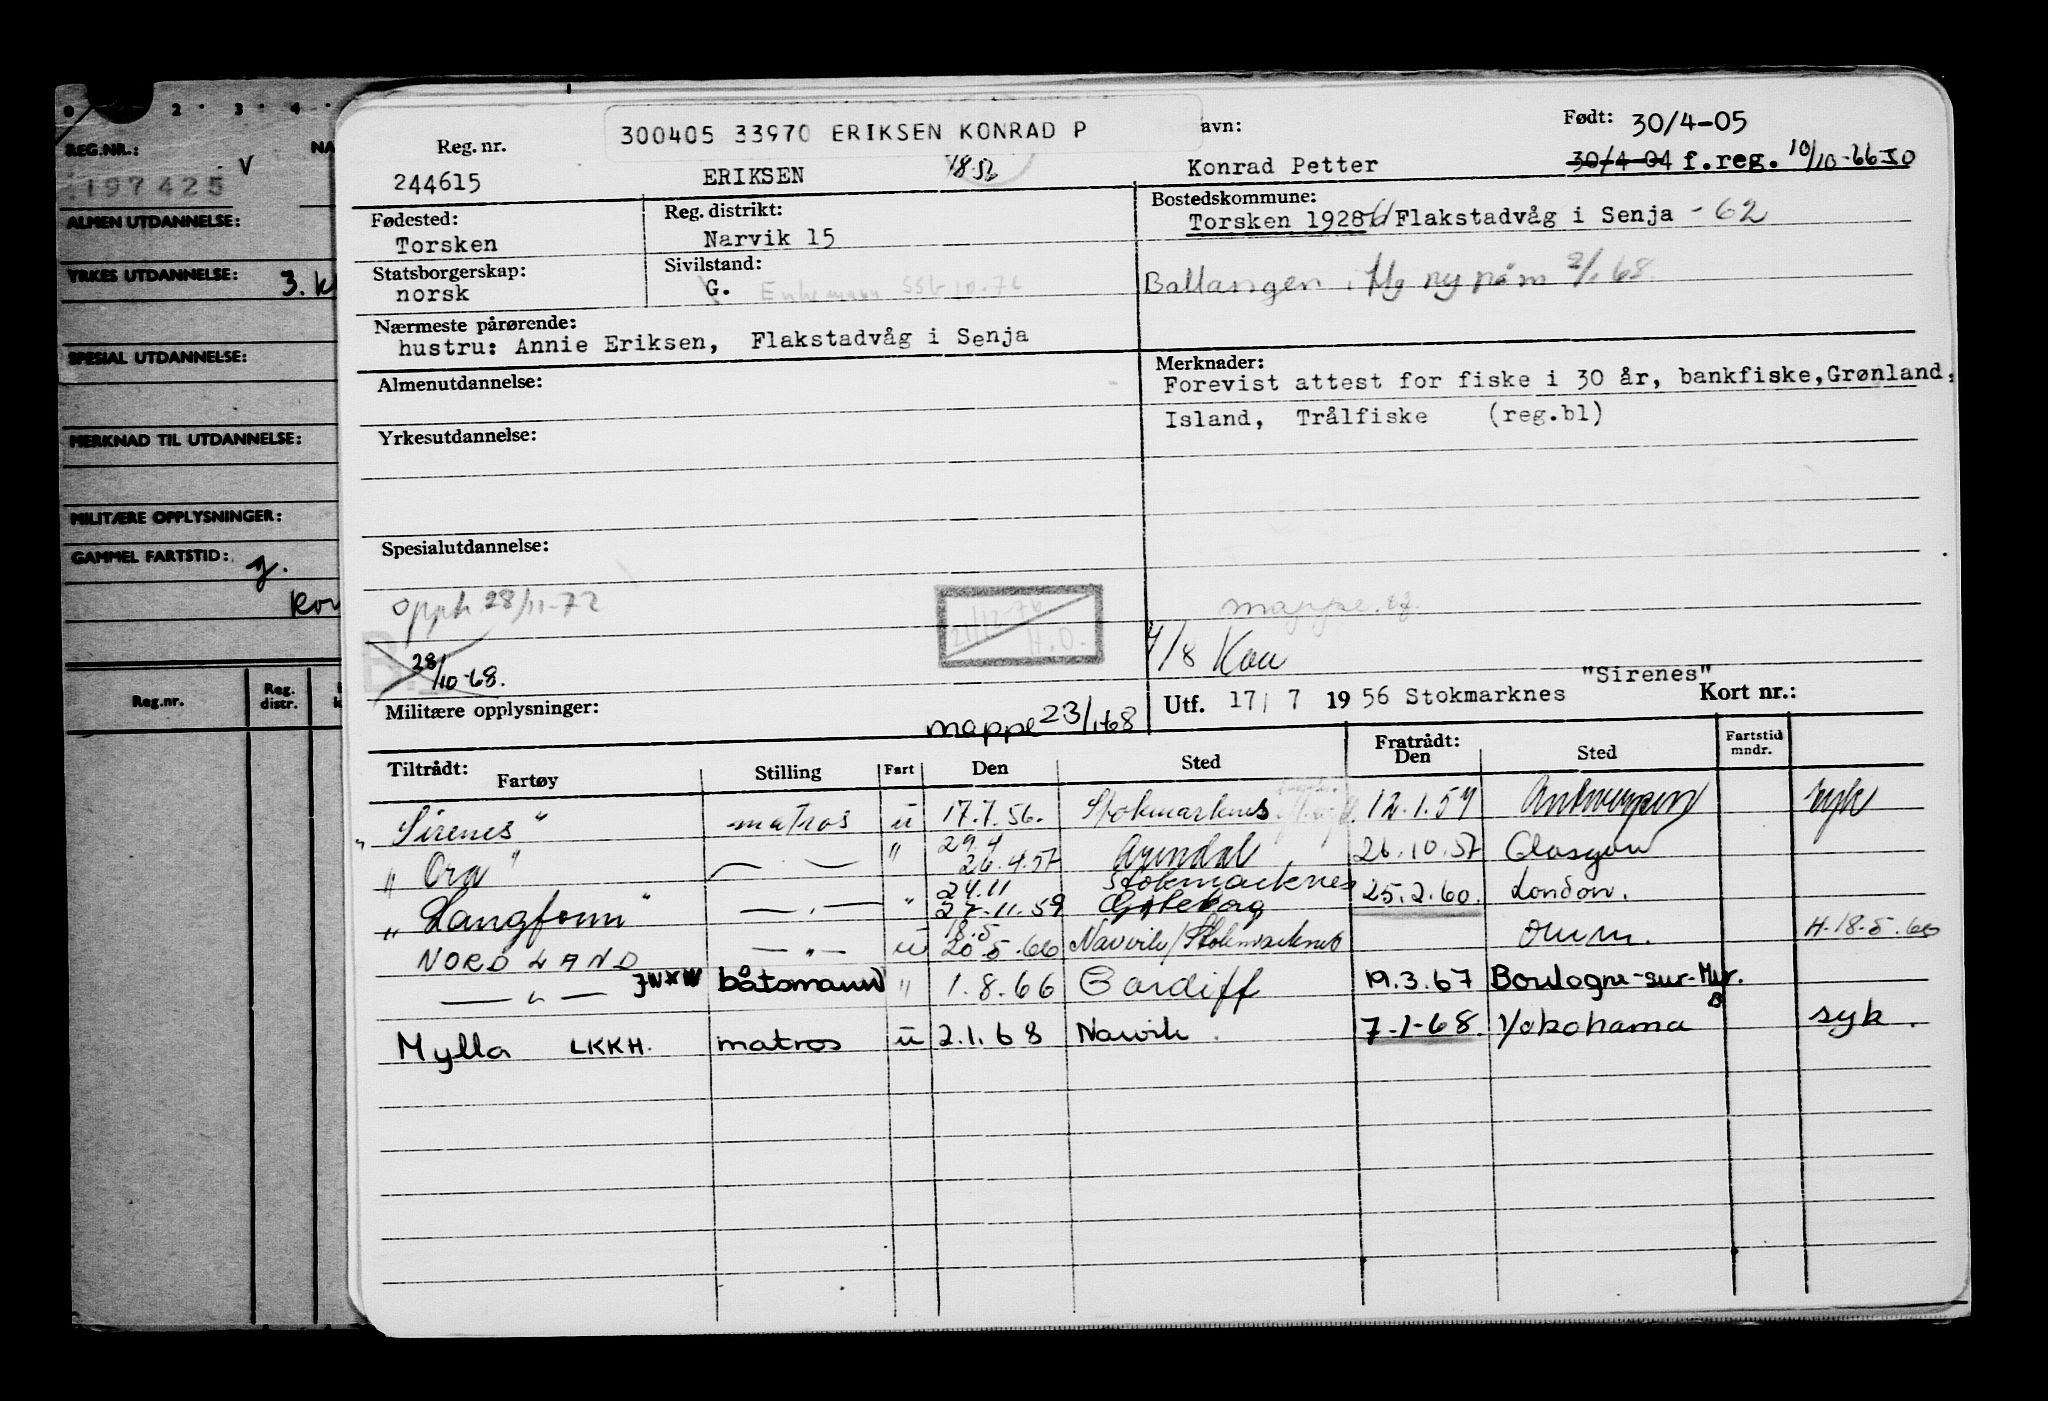 2 · 3 · 4 ·
REG.NR.: V NA
197425
ALMEN UTDANNELSE:
YRKES UTDANNELSE: 3. k
SPESIAL UTDANNELSE:
MERKNAD TIL UTDANNELSE:
MILITÆRE OPPLYSNINGER:
GAMMEL FARTSTID: g.
Reg.nr. Reg. distr.
300405 33970 ERIKSEN KONRAD P avn: Født: 30/4-05
Reg. nr. 30/4-04 f.reg. 10/10-66 JO
244615 ERIKSEN Konrad Petter
Fødested: Reg. distrikt: Bostedskommune:
Torsken Narvik 15 Torsken 1928 Flakstadvåg i Senja - 62
Statsborgerskap: Sivilstand: Ballangen
norsk G. Enkemann
Nærmeste pårørende:
hustru: Annie Eriksen, Flakstadvåg i Senja
Merknader:
Almenutdannelse: Forevist attest for fiske i 30 år, bankfiske, Grønland,
Island, Trålfiske (reg.bl)
Yrkesutdannelse:
Spesialutdannelse:
opph 28/11-72 21/12-76 H.O. mappe
28/10-68. 4/8
"Sirenes"
Utf. 17/ 7 1956 Stokmarknes Kort nr.:
Militære opplysninger: mappe 23/1-68
Tiltrådt: Fartøy Stilling Fart Den Sted Fratrådt: Den Sted Fartstid mndr.
"Sirenes" matros u 17.7.56. Stokmarknes 12.1.57 Antwerpen syk
"Ora" — " — " 29.4 26.4.57 Arendal 26.10.57 Glasgow
"Langfonn" — " — " 24.11 27.11.59 Stokmarknes Gøteborg 25.2.60. London.
NORDLAND — " — u 18.5 20.5.66 Narvik/Stokmarknes H. 18.5.66
— " — JWXW båtsmann " 1.8.66 Cardiff 19.3.67 Boulogne-sur-Mer.
Mylla LKKH. matros u 2.1.68 Narvik. 7-1-68. Yokohama syk.